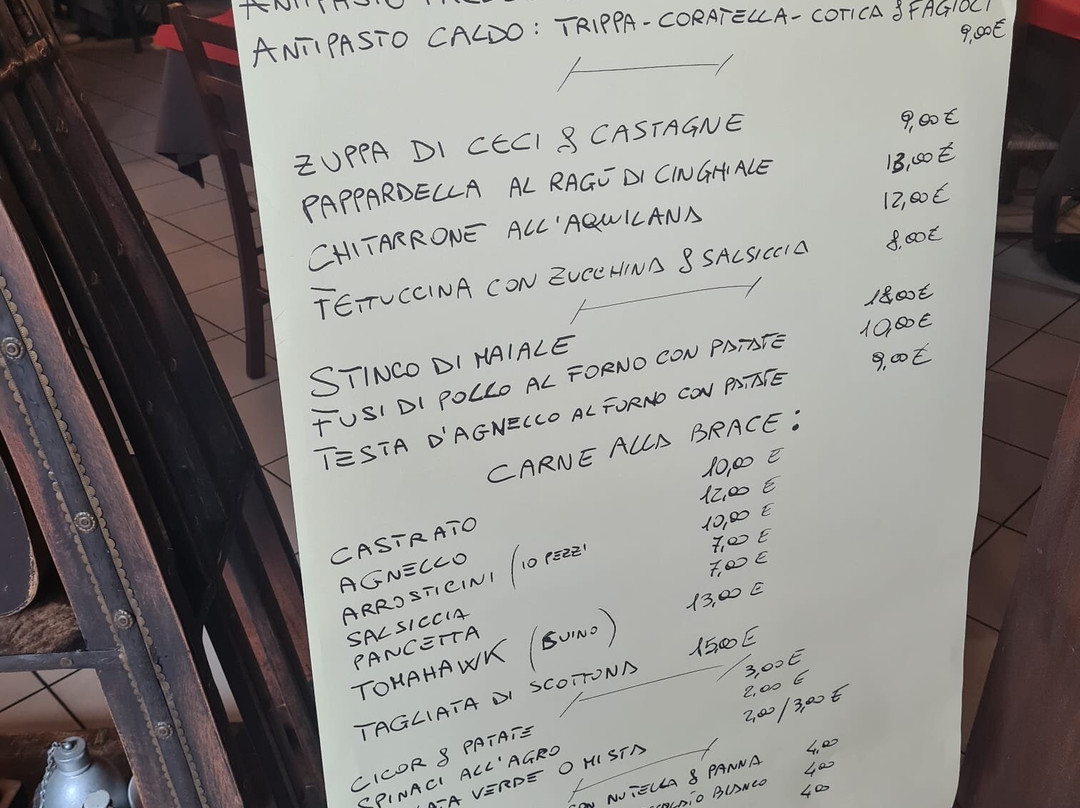 ANTIPASTO
ANTIPASTO CALDO: TRIPPA - CORATELLA - COTICA & FAGIOLI
9,00 €
ZUPPA DI CECI & CASTAGNE 9,00 €
PAPPARDELLA AL RAGÙ DI CINGHIALE 13,00 €
CHITARRONE ALL'AQUILANA 12,00 €
FETTUCCINA CON ZUCCHINA & SALSICCIA 8,00 €
STINCO DI MAIALE 18,00 €
FUSI DI POLLO AL FORNO CON PATATE 10,00 €
TESTA D'AGNELLO AL FORNO CON PATATE 9,00 €
CARNE ALLA BRACE:
CASTRATO 10,00 €
AGNELLO 12,00 €
ARROSTICINI (10 PEZZI 10,00 €
SALSICCIA 7,00 €
PANCETTA 7,00 €
TOMAHAWK (SUINO) 13,00 €
TAGLIATA DI SCOTTONA 15,00 €
CICOR & PATATE 3,00 €
SPINACI ALL'AGRO 2,00 €
VERDE O MISTA 2,00 / 3,00 €
NUTELLA & PANNA 4,00
BIANCO 4,00
4,00